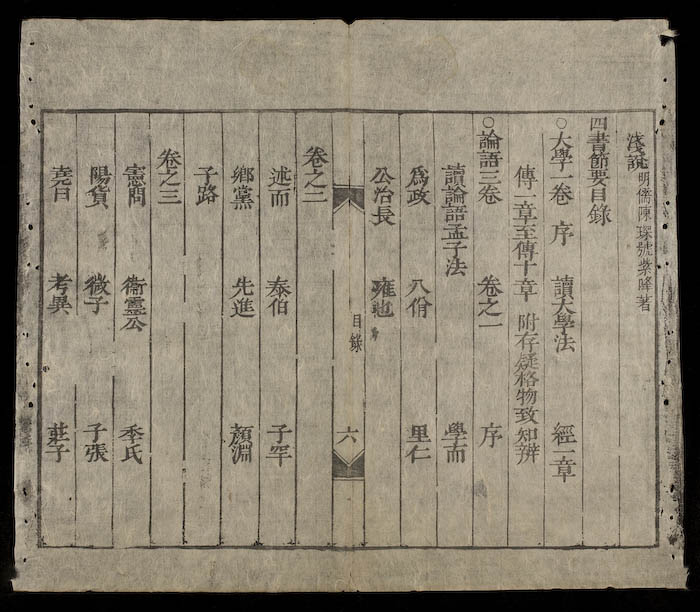 淺説明儒陳琛號紫峰著
四書節要目錄
○大學一卷 序 讀大學法 經一章
傳一章至傳十章 附存疑格物致知辨
○論語三卷 卷之一 序
讀論語孟子法 學而
爲政 八佾 里仁
公冶長 雍也
目錄 六
卷之二
述而 泰伯 子罕
鄉黨 先進 顏淵
子路
卷之三
憲問 衞靈公 季氏
陽貨 微子 子張
堯曰 考異 莊子